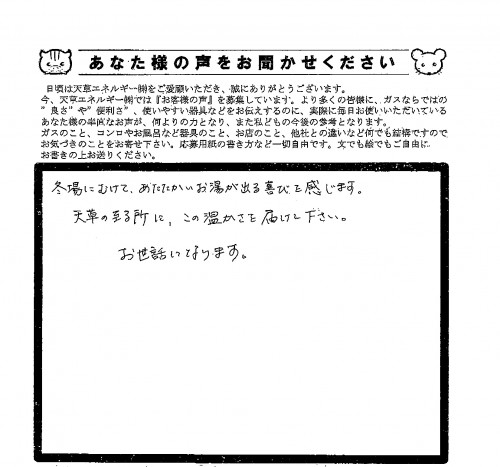 あなた様の声をお聞かせください
日頃は天草エネルギー㈱をご愛顧いただき、誠にありがとうございます。
今、天草エネルギー㈱では『お客様の声』を募集しています。より多くの皆様に、ガスならではの
"良さ"や"便利さ"、使いやすい器具などをお伝えするのに、実際に毎日お使いいただいている
あなた様の率直なお声が、何よりの力となり、また私どもの今後の参考となります。
ガスのこと、コンロやお風呂など器具のこと、お店のこと、他社との違いなど何でも結構ですので
お気づきのことをお寄せ下さい。応募用紙の書き方など一切自由です。文でも絵でもご自由に
お書きの上お送りください。
冬場にむけて、あたたかいお湯が出る喜びを感じます。
天草の至る所に、この温かさを届けし下さい。
お世話になります。